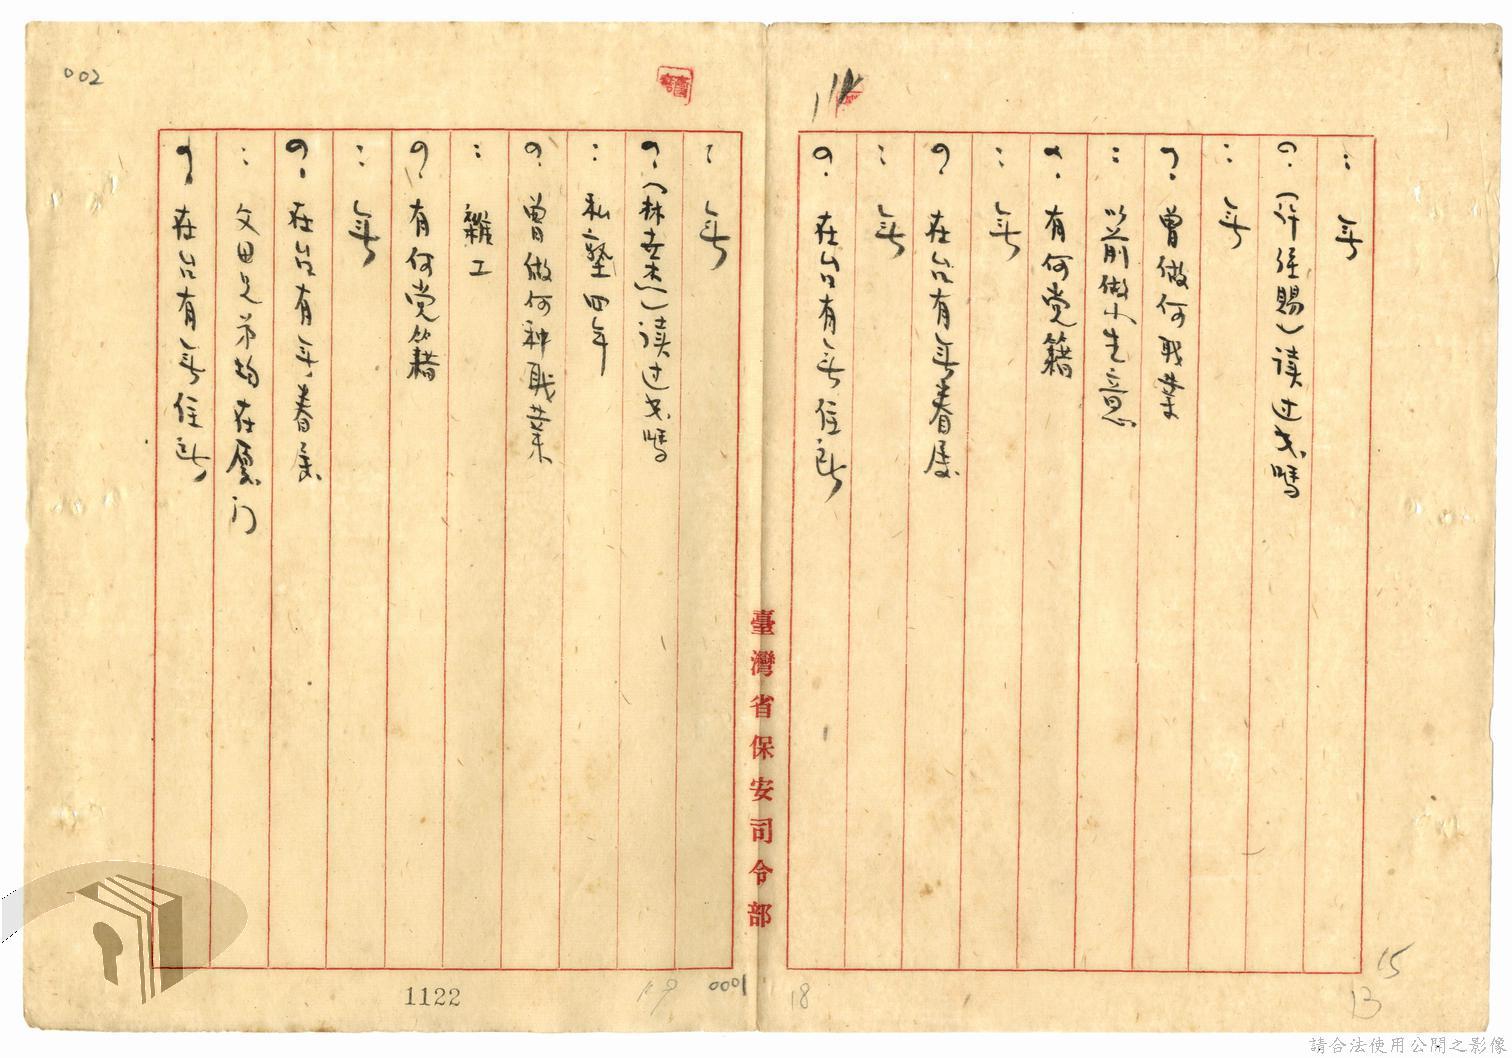 002
：無
？（許賜）读过书嗎
：無
？曾做何职業
：以前做小生意
？有何党籍
：無
？在台有無眷属
：無
？在台有無住所
臺灣省保安司令部
：無
？（林）读过书嗎
：私塾四年
？曾做何种职業
：雜工
？有何党籍
：無
？在台有無眷属
：父母兄弟均在厦门
？在台有無住所
15
13
18
0001
1122
請合法使用公開之影像